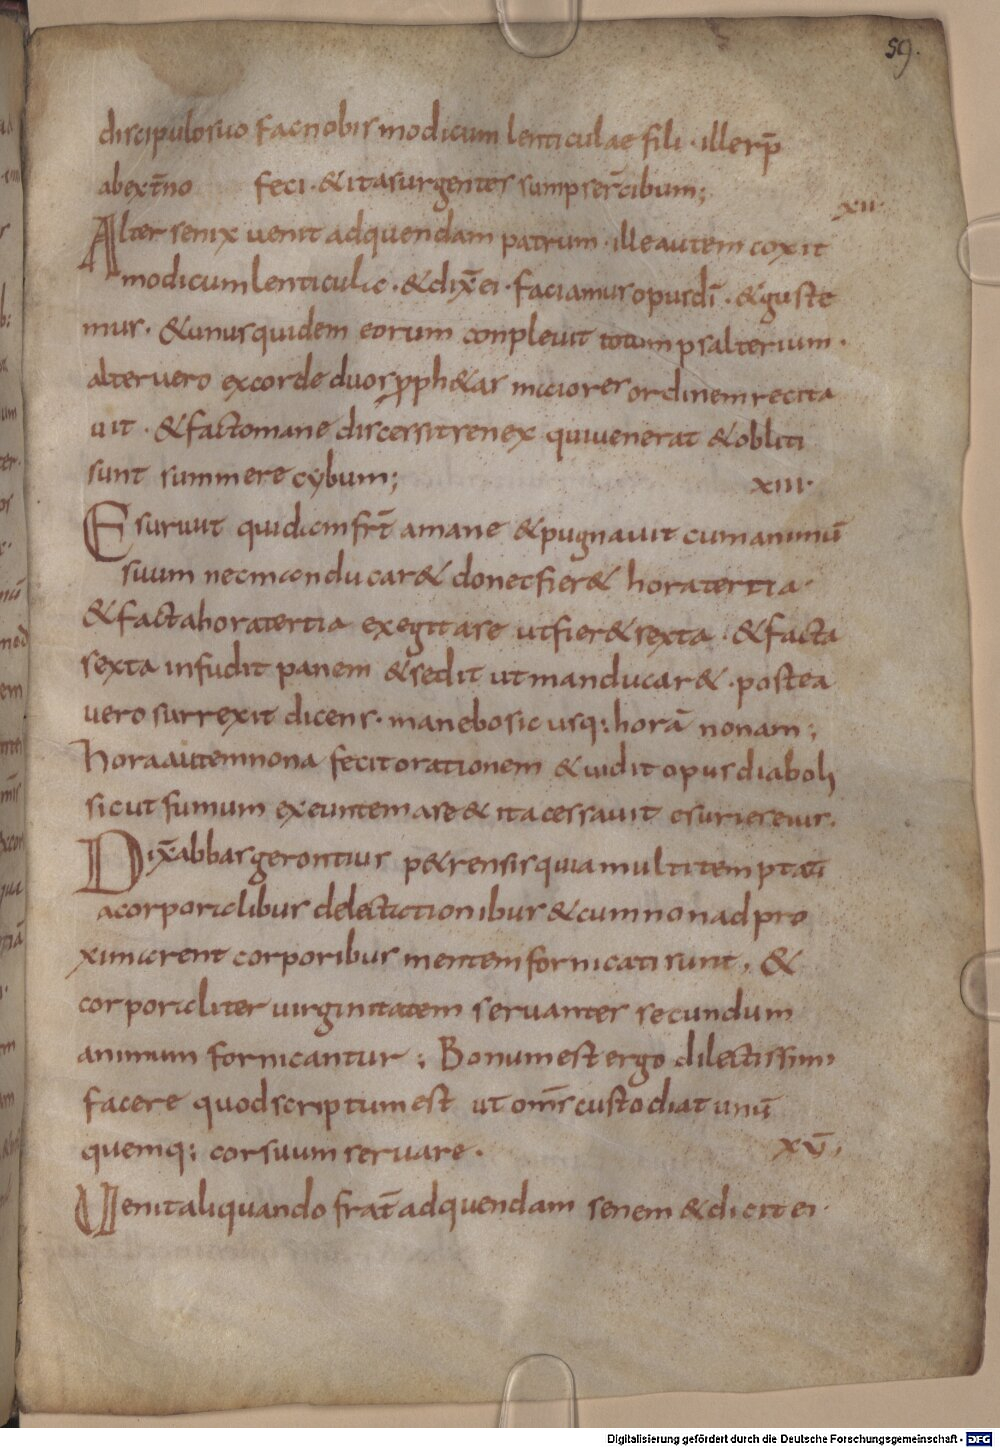 59.
discipulo suo fac nobis modicum lenticulae fili · ille rp̄
ab ext̄no feci · & ita surgentes sumpser̄ cibum;
xii·
Alter senix uenit ad quendam patrum · ille autem coxit
modicum lenticulae · & dix̄ ei · faciamus opus dī · & guste
mus · & unus quidem eorum conpleuit totum psalterium ·
alter uero ex corde duos pph&as maiores ordinem recita
uit · & facto mane discessit senex qui uenerat & obliti
sunt summere cybum;
xiii·
Esuriuit quidam frt̄ a mane & pugnauit cum animū
suum ne manducar& donec fier& hora tertia·
& facta hora tertia exegit a se ut fier& sexta · & facta
sexta infudit panem & sedit ut manducar& · postea
uero surrexit dicens · mane bo sic usq: horā nonam;
hora autem nona fecit orationem & uidit opus diaboli
sicut fumum exeuntem a se & ita cessauit esuries eius.
Dix̄ abbas gerontius p&rensis quia multi temptati
a corporalibus delectationibus & cum non adpro
ximarent corporibus mentem fornicati sunt, &
corporaliter uirginitatem seruantes secundum
animum fornicantur; Bonum est ergo dilectissimi
facere quod scriptum est ut om̄s custodiat unū
quemq: cor suum seruare ·
xv̄,
Uenit aliquando frat̄ ad quendam senem & dicit ei·
Digitalisierung gefördert durch die Deutsche Forschungsgemeinschaft - DFG